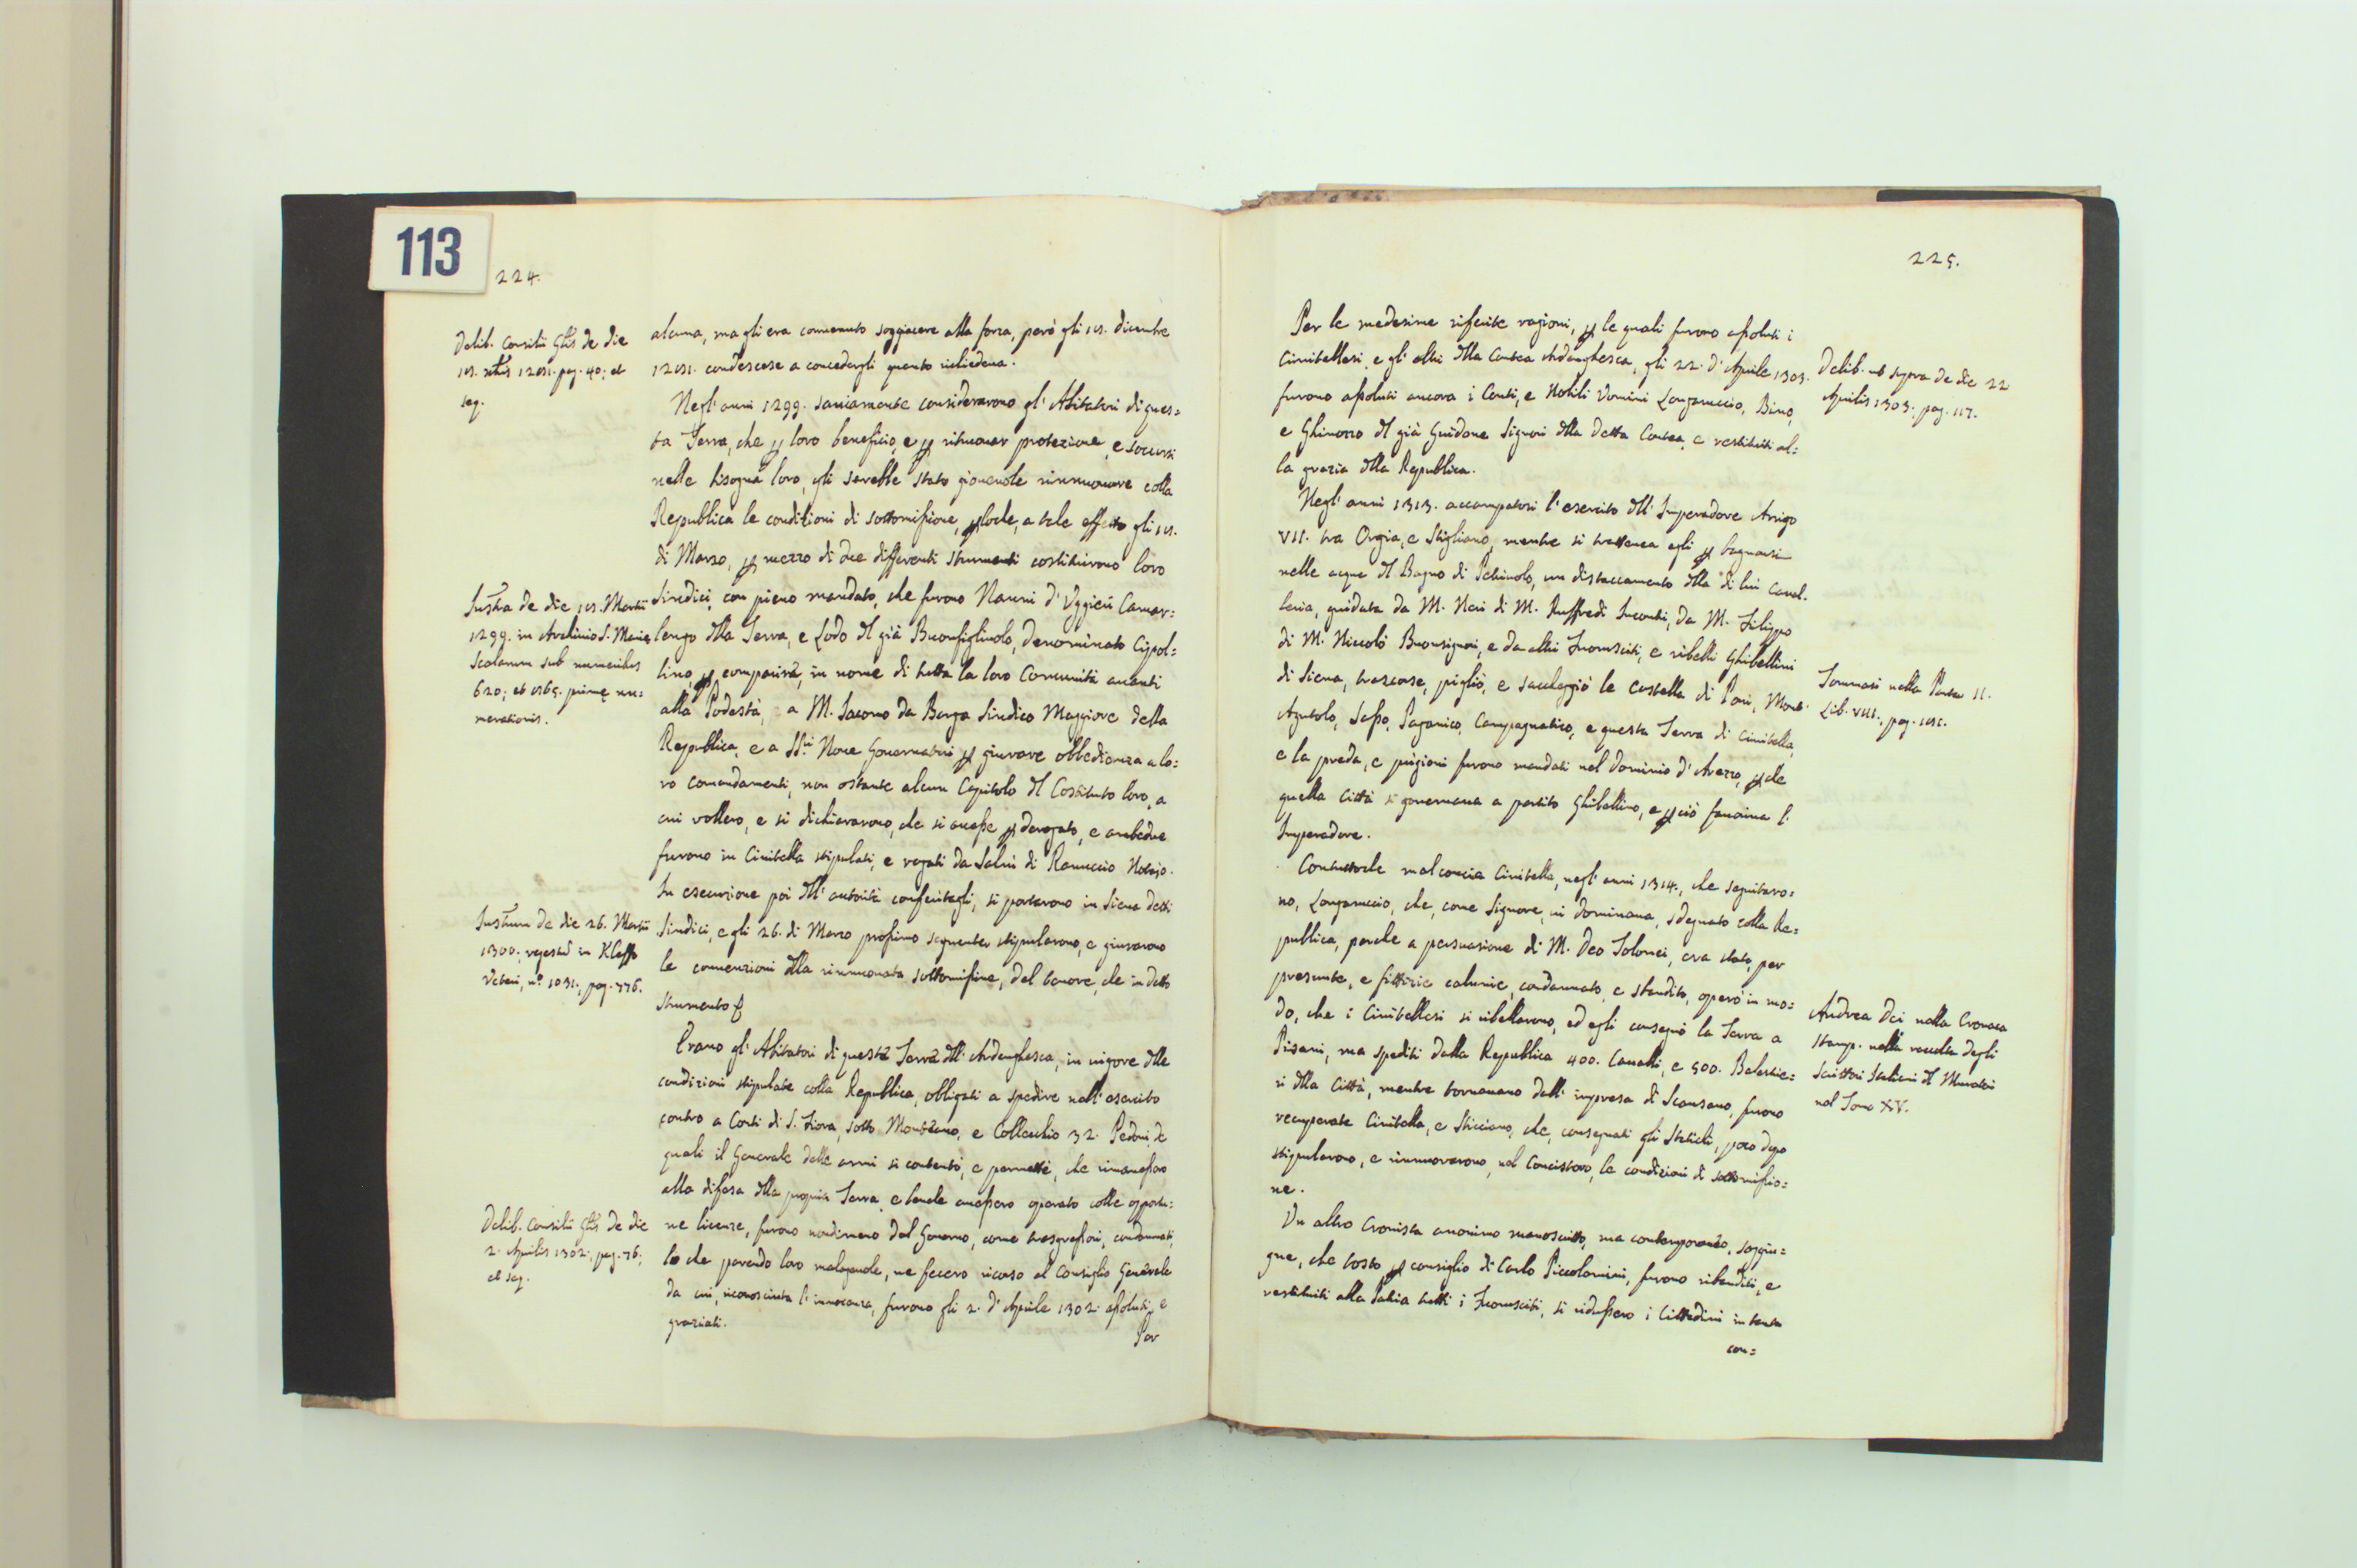 113
224.
Delib. Consilii Glis de die
xbris pag. 40; et
seq.
alcuna, ma gli era conuenuto soggiacere alla forza, però gli dicembre
condescese a concedergli quanto richiedeua.
Negl' anni 1299. sauiamente considerarono gl' Abitatori di ques=
ta Terra, che p loro beneficio, e p rihauer protezione, e soccorsi
nelle bisogna loro, gli sarebbe stato gioueuole rinnuouare colla
Republica le condizioni di sottomissione, a tale effetto gli
di Marzo, p mezzo di due differenti strumenti costituirono loro
Instra de die Martii
1299. in Archiuio S. Marie
Scalarum sub numeribus
620; et prime nu=
merationis.
Sindici, con pieno mandato, che furono Nanni d' Camar=
lengo dlla Terra, e Lodo dl già Buonfigliuolo, denominato Cipol=
lino, p comparire, in nome di tutta la loro Comunità auanti
alla Podestà, a M. Iacomo da Sindico Maggiore della
Republica, e a SSri Noue Gouernatori p giurare obbedienza a lo=
ro comandamenti, non ostante alcun Capitolo dl Costituto loro, a
cui vollero, e si dichiararono, che si auesse p derogato, e ambedue
furono in Ciuitella stipulati, e rogati da Salui di Ranuccio Notajo.
In esecuzione poi dll' autorità conferitagli, si portarono in Siena detti
Instrum de die 26. Martii
1300; in Kleffo
Veteri, nº pag. 776.
Sindici, e gli 26. di Marzo prossimo seguente stipularono, e giurarono
le conuenzioni dlla rinnuouata sottomissione, del tenore, che in detto
strumento
Erano gl' Abitatori di questa Terra dll' Ardenghesca, in uigore dlle
condizioni stipulate colla Republica, obbligati a spedire nell' esercito
contro a Conti di S. Fiora, sotto e Collecchio 32. Pedoni, de
quali il Generale delle armi si contentò, e permesse, che rimanessero
alla difesa dlla propria Terra, e benche auessero operato colle opportu=
Delib. Consilii Glis de die
2. Aprilis 1302. pag. 76;
et seq.
ne licenze, furono nondimeno dal Gouerno, come trasgressori, condannati,
lo che parendo loro malageuole, ne fecero ricorso al Consiglio Generale
da cui, riconosciuta l' innocenza, furono gli 2. d' Aprile 1302. assoluti, e
graziati.
Per
225.
Per le medesime riferite ragioni, p le quali furono assoluti i
Ciuitellesi, e gl' altri dlla Contea Ardenghesca, gli 22. d' Aprile 1303.
furono assoluti ancora i Conti, e Nobili Uomini Longaruccio, Bino,
e Ghinozzo dl già Guidone Signori dlla detta Contea, e restituiti al=
la grazia dlla Republica.
Delib. ut supra de die 22
Aprilis 1303; pag. 117.
Negl' anni 1313. accampatosi l' esercito dll' Imperadore Arrigo
VII. tra Orgia, e Stigliano, mentre si tratteneua egli p bagnarsi
nelle acque dl Bagno di Petriuolo, un distaccamento dlla di lui Caual.
leria, guidata da M. Neri di M. Ruffredi Incontri, da M. Filippo
di M. Niccolò Buonsignori, e da altri Fuorusciti, e ribelli Ghibellini
di Siena, trascorse, pigliò, e saccheggiò le Castella di Pari, Mont'
Agutolo, Sasso, Paganico, Campagnatico, e questa Terra di Ciuitella,
e la preda, e prigioni furono mandati nel Dominio d' Arezzo, p che
quella Città si gouernaua a partito Ghibellino, e p ciò fauoriua l'
Imperadore.
Tommasi nella Parte II.
Lib. VIII, pag.
Contuttoche malconcia Ciuitella, negl' anni 1314., che seguitaro=
no, Longaruccio, che, come Signore, ui dominaua, sdegnato colla Re=
publica, perche a persuasione di M. Deo Tolomei, era stato, per
presunte, e fittizie calunie, condannato, e sbandito, operò in mo=
do, che i Ciuitellesi si ribellarono, ed egli consegnò la Terra a
Pisani, ma spediti dalla Republica 400. Caualli, e 500. Balestrie=
ri dlla Città, mentre tornauano dall' impresa di Scansano, furono
recuperate Ciuitella, e Sticciano, che, consegnati gli Statichi, poco dopo
stipularono, e rinnuovarono, nel Concistoro, le condizioni di sottomissio=
ne.
Andrea Dei nella Cronaca
stamp. nella raccolta degli
Scrittori Italiani dl Muratori
nel Tomo XV.
Un altro Cronista anonimo manoscritto, ma contemporaneo, soggiu=
gne, che tosto, p consiglio di Carlo Piccolomini, furono ribanditi, e
restituiti alla Patria tutti i Fuorusciti, si ridussero i Cittadini in tanta
con=